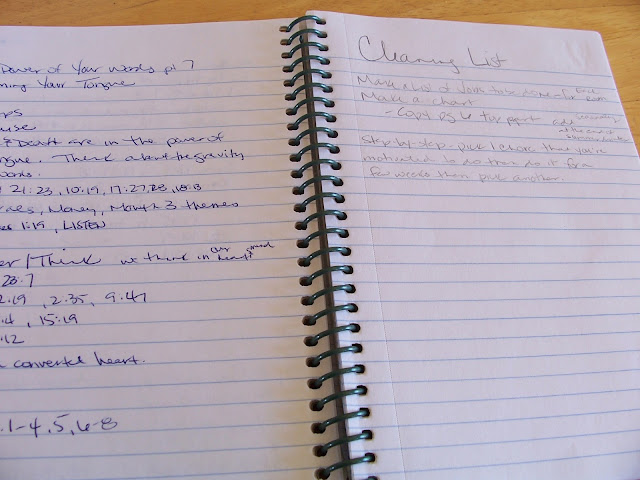 Power of Your Words pt 7
Your Tongue
& Death are in the power of
. Think about the gravity
words.
21:23, 10:19, 17:27,28, 18:8
, Money, Mouth 3 themes
1:19, LISTEN
/Think we think in our heart mind
28:7
2:19, 2:35, 9:47
:4, 15:19
:12
converted heart.
.1-4, 5, 6-8
Cleaning List
Make a list of jobs to be done for each room
Make a chart
- Copy pg 6 top part add
Step by step - pick 1 chore that you're
motivated to do then do it for a
few weeks then pick another.